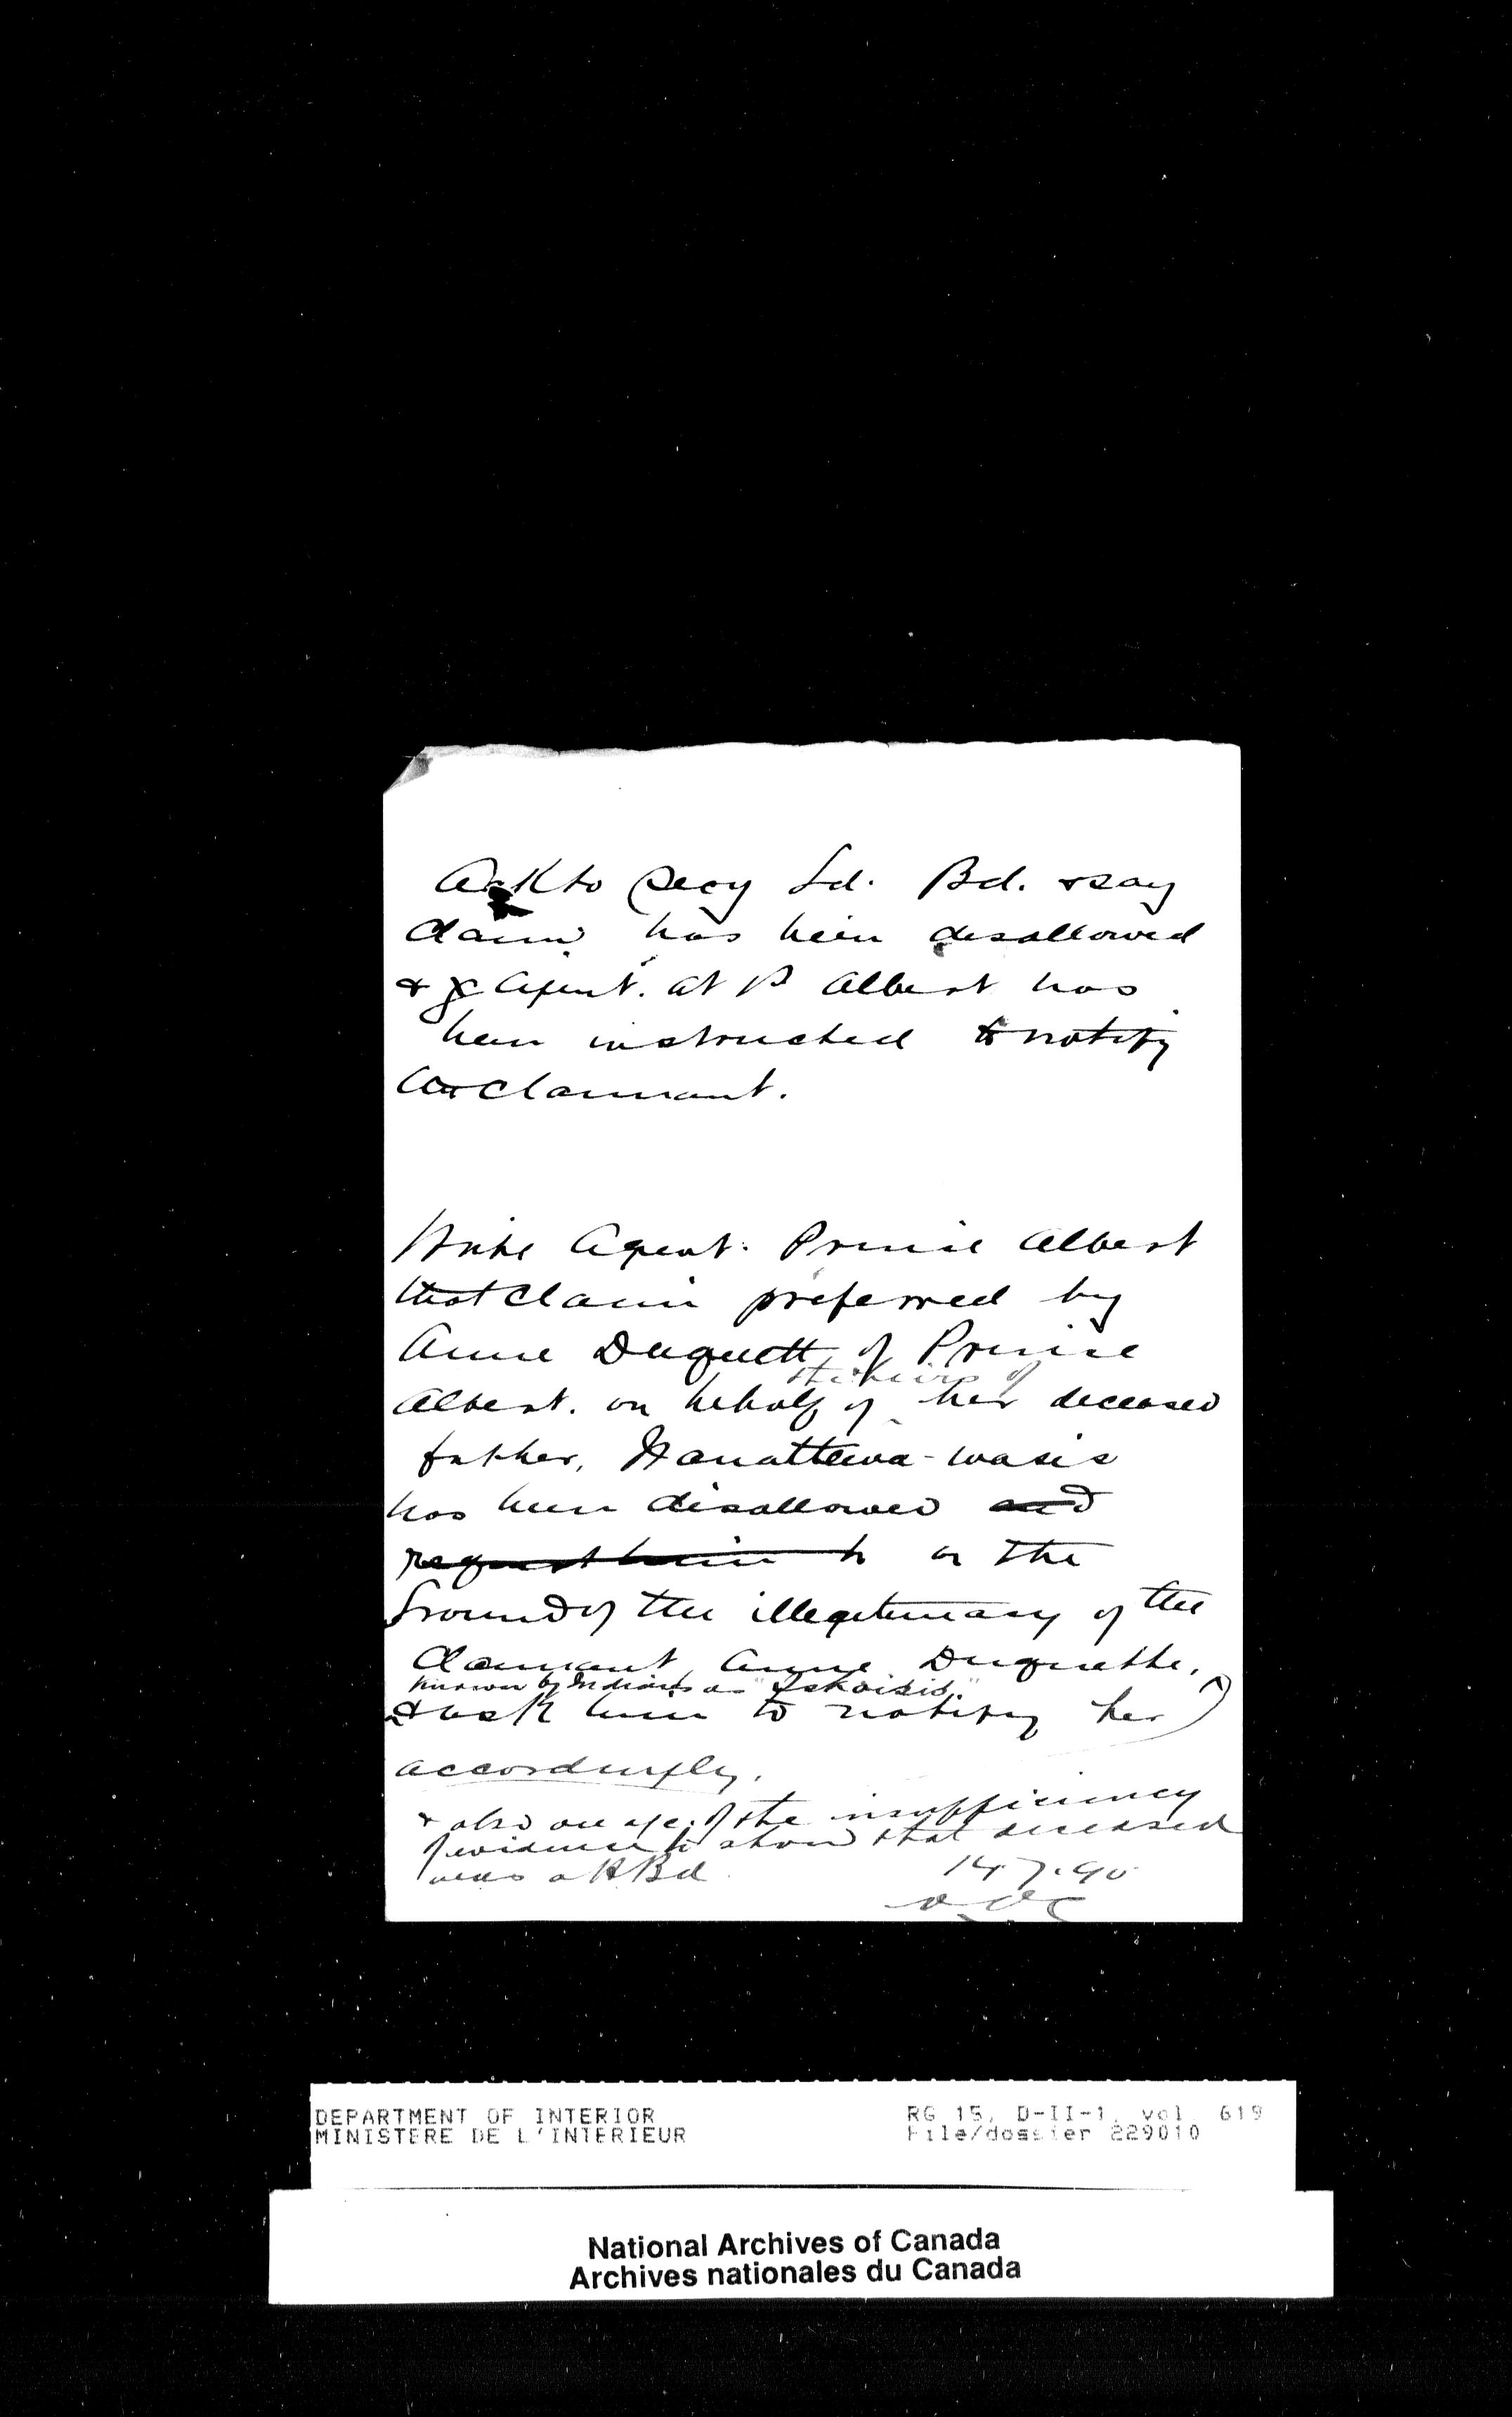 Ack to Secy Ld. Bd. & say
claim has been disallowed
& Agent. at P Albert has
been instructed to notify
claimant.
Write Agent. Prince Albert
that claim preferred by
Anne Duquett, of Prince
the heirs of
Albert. on behalf of her deceased
father, Wanattewa-wasis
has been disallowed and
request him to on the
Ground of the illegitimacy of the
Claimant, Anne Duquette,
known by Indians as "Iskoisis."
& ask him to notify her
accordingly.
& also on a/c. of the insufficiency
of evidence to show that deceased
was a HBd
14.7.90
DEPARTMENT OF INTERIOR
MINISTERE DE L'INTERIEUR
RG 15, D-II-1, vol 619
File/dossier 229010
National Archives of Canada
Archives nationales du Canada